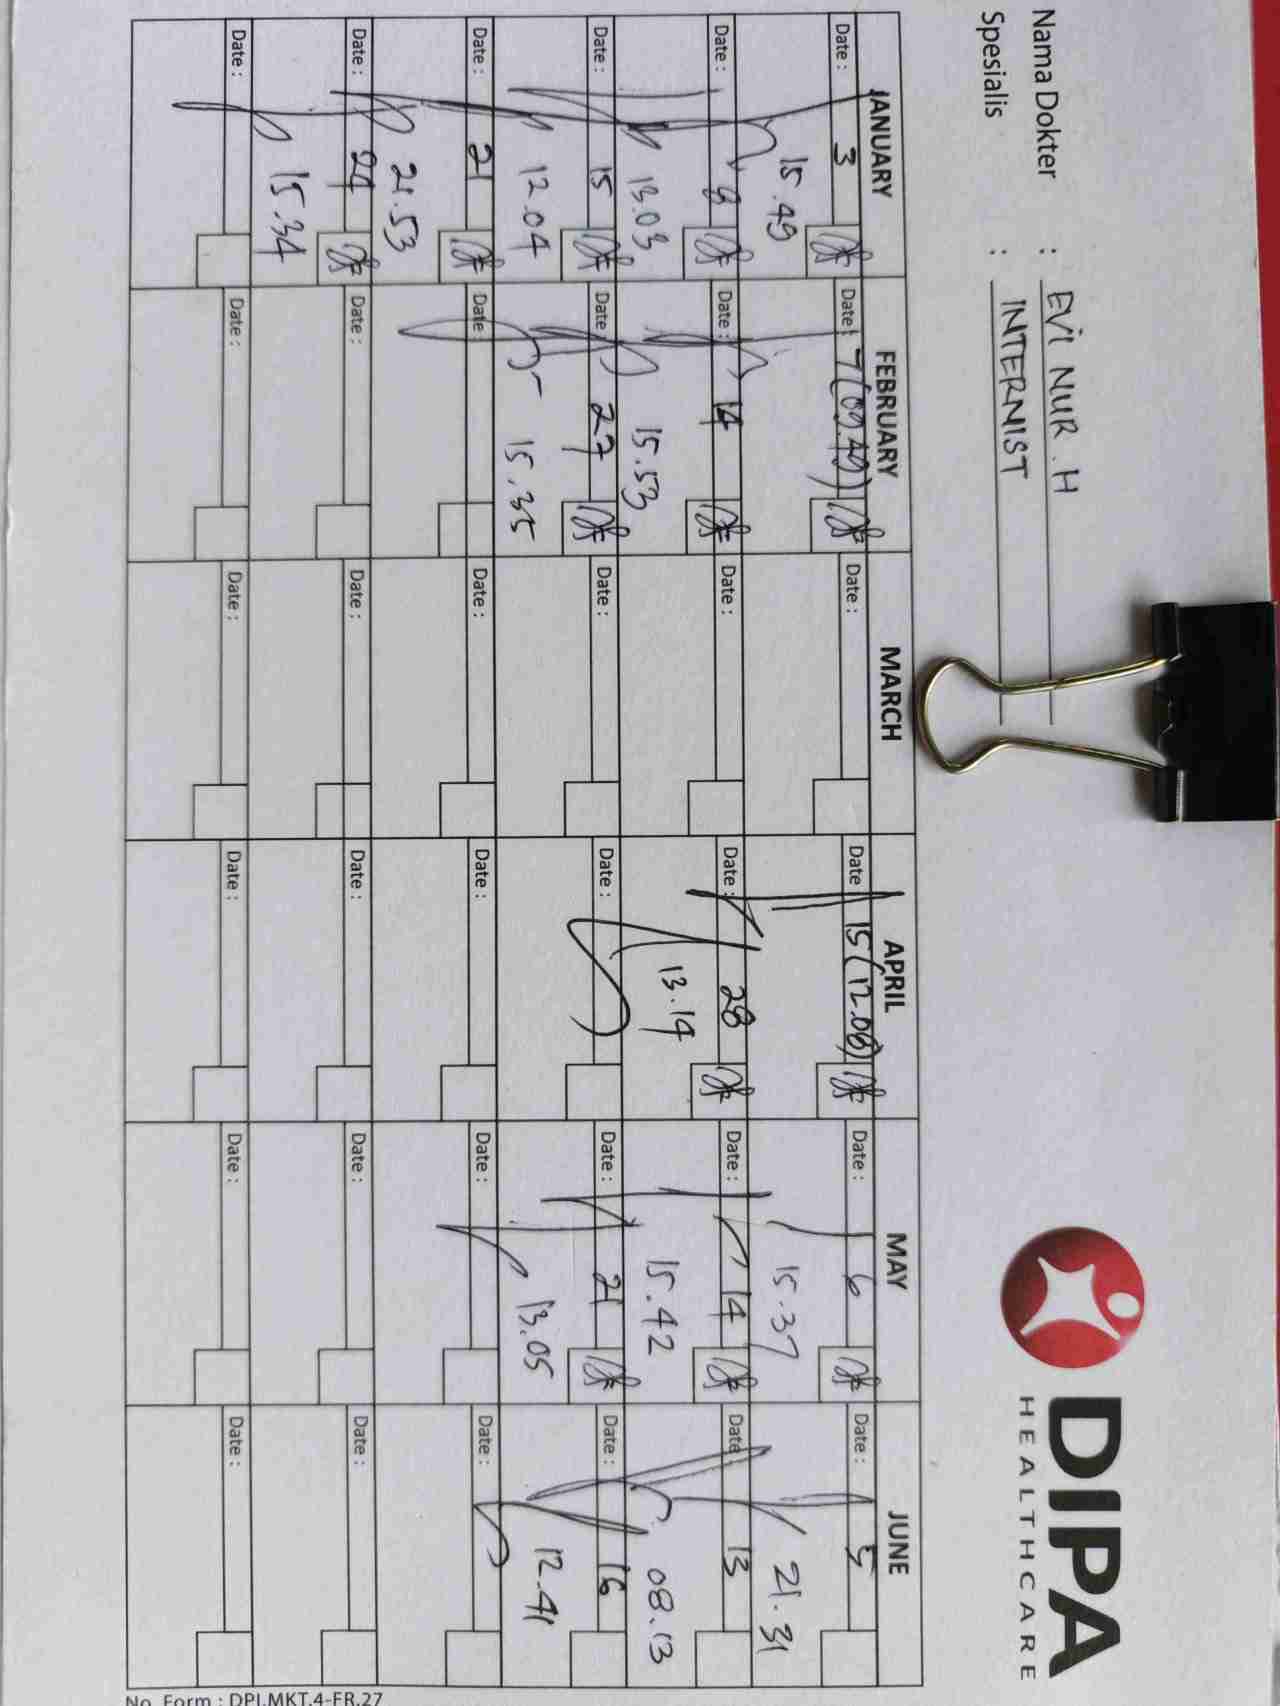 Nama Dokter : EVI NUR . H
Spesialis : INTERNIST
DIPA
HEALTHCARE
JANUARY FEBRUARY MARCH APRIL MAY JUNE
Date : 3 Date : 7 (09.49) Date : Date 15 (12.08) Date : 6 Date : 5
15.49 15.37 21.31
Date : 8 Date : 14 Date : Date : 28 Date : 14 Date 13
13.03 15.53 13.14 15.42 08.13
Date : 15 Date 27 Date : Date : Date : 21 Date : 16
12.04 15.35 13.05 12.41
Date : 21 Date Date : Date : Date : Date :
21.53
Date : 24 Date : Date : Date : Date : Date :
15.34
Date : Date : Date : Date : Date : Date :
No. Form : DPI.MKT.4-FR.27